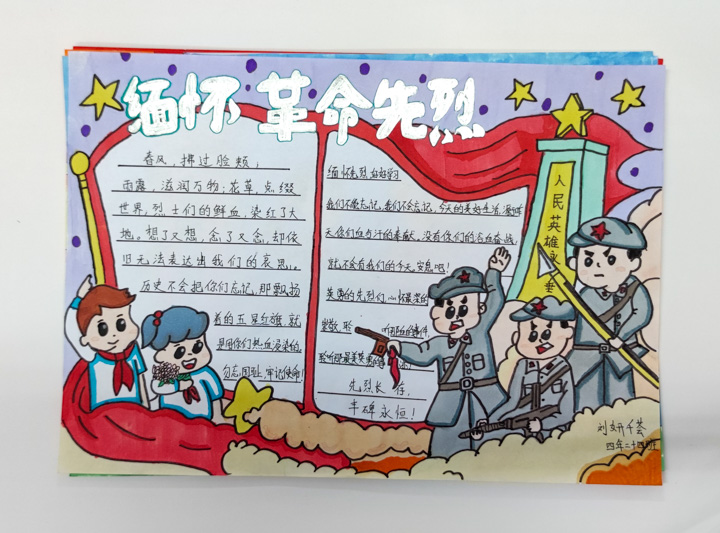 缅怀革命先烈
春风，拂过脸颊，
雨露，滋润万物；花草，点缀
世界，烈士们的鲜血，染红了大
地。想了又想，念了又念，却依
旧无法表达出我们的哀思。
历史不会把你们忘记，那飘扬
着的五星红旗，就
是用你们热血浸染的，
勿忘国耻，牢记使命！
缅怀先烈 好好学习
我们不能忘记，我们不会忘记，今天的美好生活
天你们血与汗的奉献，没有你们的浴血奋战，
就不会有我们的今天，安息吧！
英勇的先烈们，心怀最深的
崇敬，聆
先烈长存，
丰碑永恒！
人民英雄永垂
刘妍千荟
四年二十四班